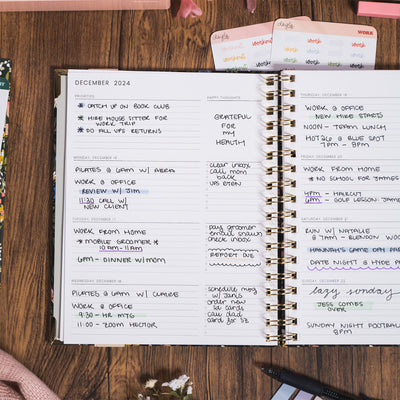 WORK
DECEMBER 2024
PRIORITIES
* CATCH UP ON BOOK CLUB
* HIRE HOUSE SITTER FOR
WORK TRIP
* DO ALL UPS RETURNS
HAPPY THOUGHTS
GRATEFUL
FOR
MY
HEALTH
MONDAY, DECEMBER 16
PILATES @ 6AM W/
WORK @ OFFICE
REVIEW W/ JIM
11:30 CALL W/
NEW CLIENT
clear inbox
call mom
back
UPS
TUESDAY, DECEMBER 17
WORK FROM HOME
* MOBILE GROOMER *
10AM-11AM
6PM - DINNER W/MOM
pay groomer
email shawn
check inbox
REPORT DUE
WEDNESDAY, DECEMBER 18
PILATES @ 6AM W/ CLAIRE
WORK @ OFFICE
9:30 - HR MTG
11:00 - ZOOM HECTOR
schedule mtg
w/ Janis
order new
id cards
call dad
card for SZ
THURSDAY, DECEMBER 19
WORK @ OFFICE
NEW HIRE STARTS
NOON - TEAM LUNCH
@ BLUE SPOT
7PM - 9PM
FRIDAY, DECEMBER 20
WORK FROM HOME
* NO SCHOOL FOR JAMES
4PM - HAIRCUT
6PM - GOLF LESSON JAMES
SATURDAY, DECEMBER 21
RUN W/ NATALIE
@ 7AM -
HANNAH'S GAME DAY
DATE NIGHT @ HYDE
SUNDAY, DECEMBER 22
lazy sunday
JESS COMES
OVER
SUNDAY NIGHT FOOTBALL
8PM